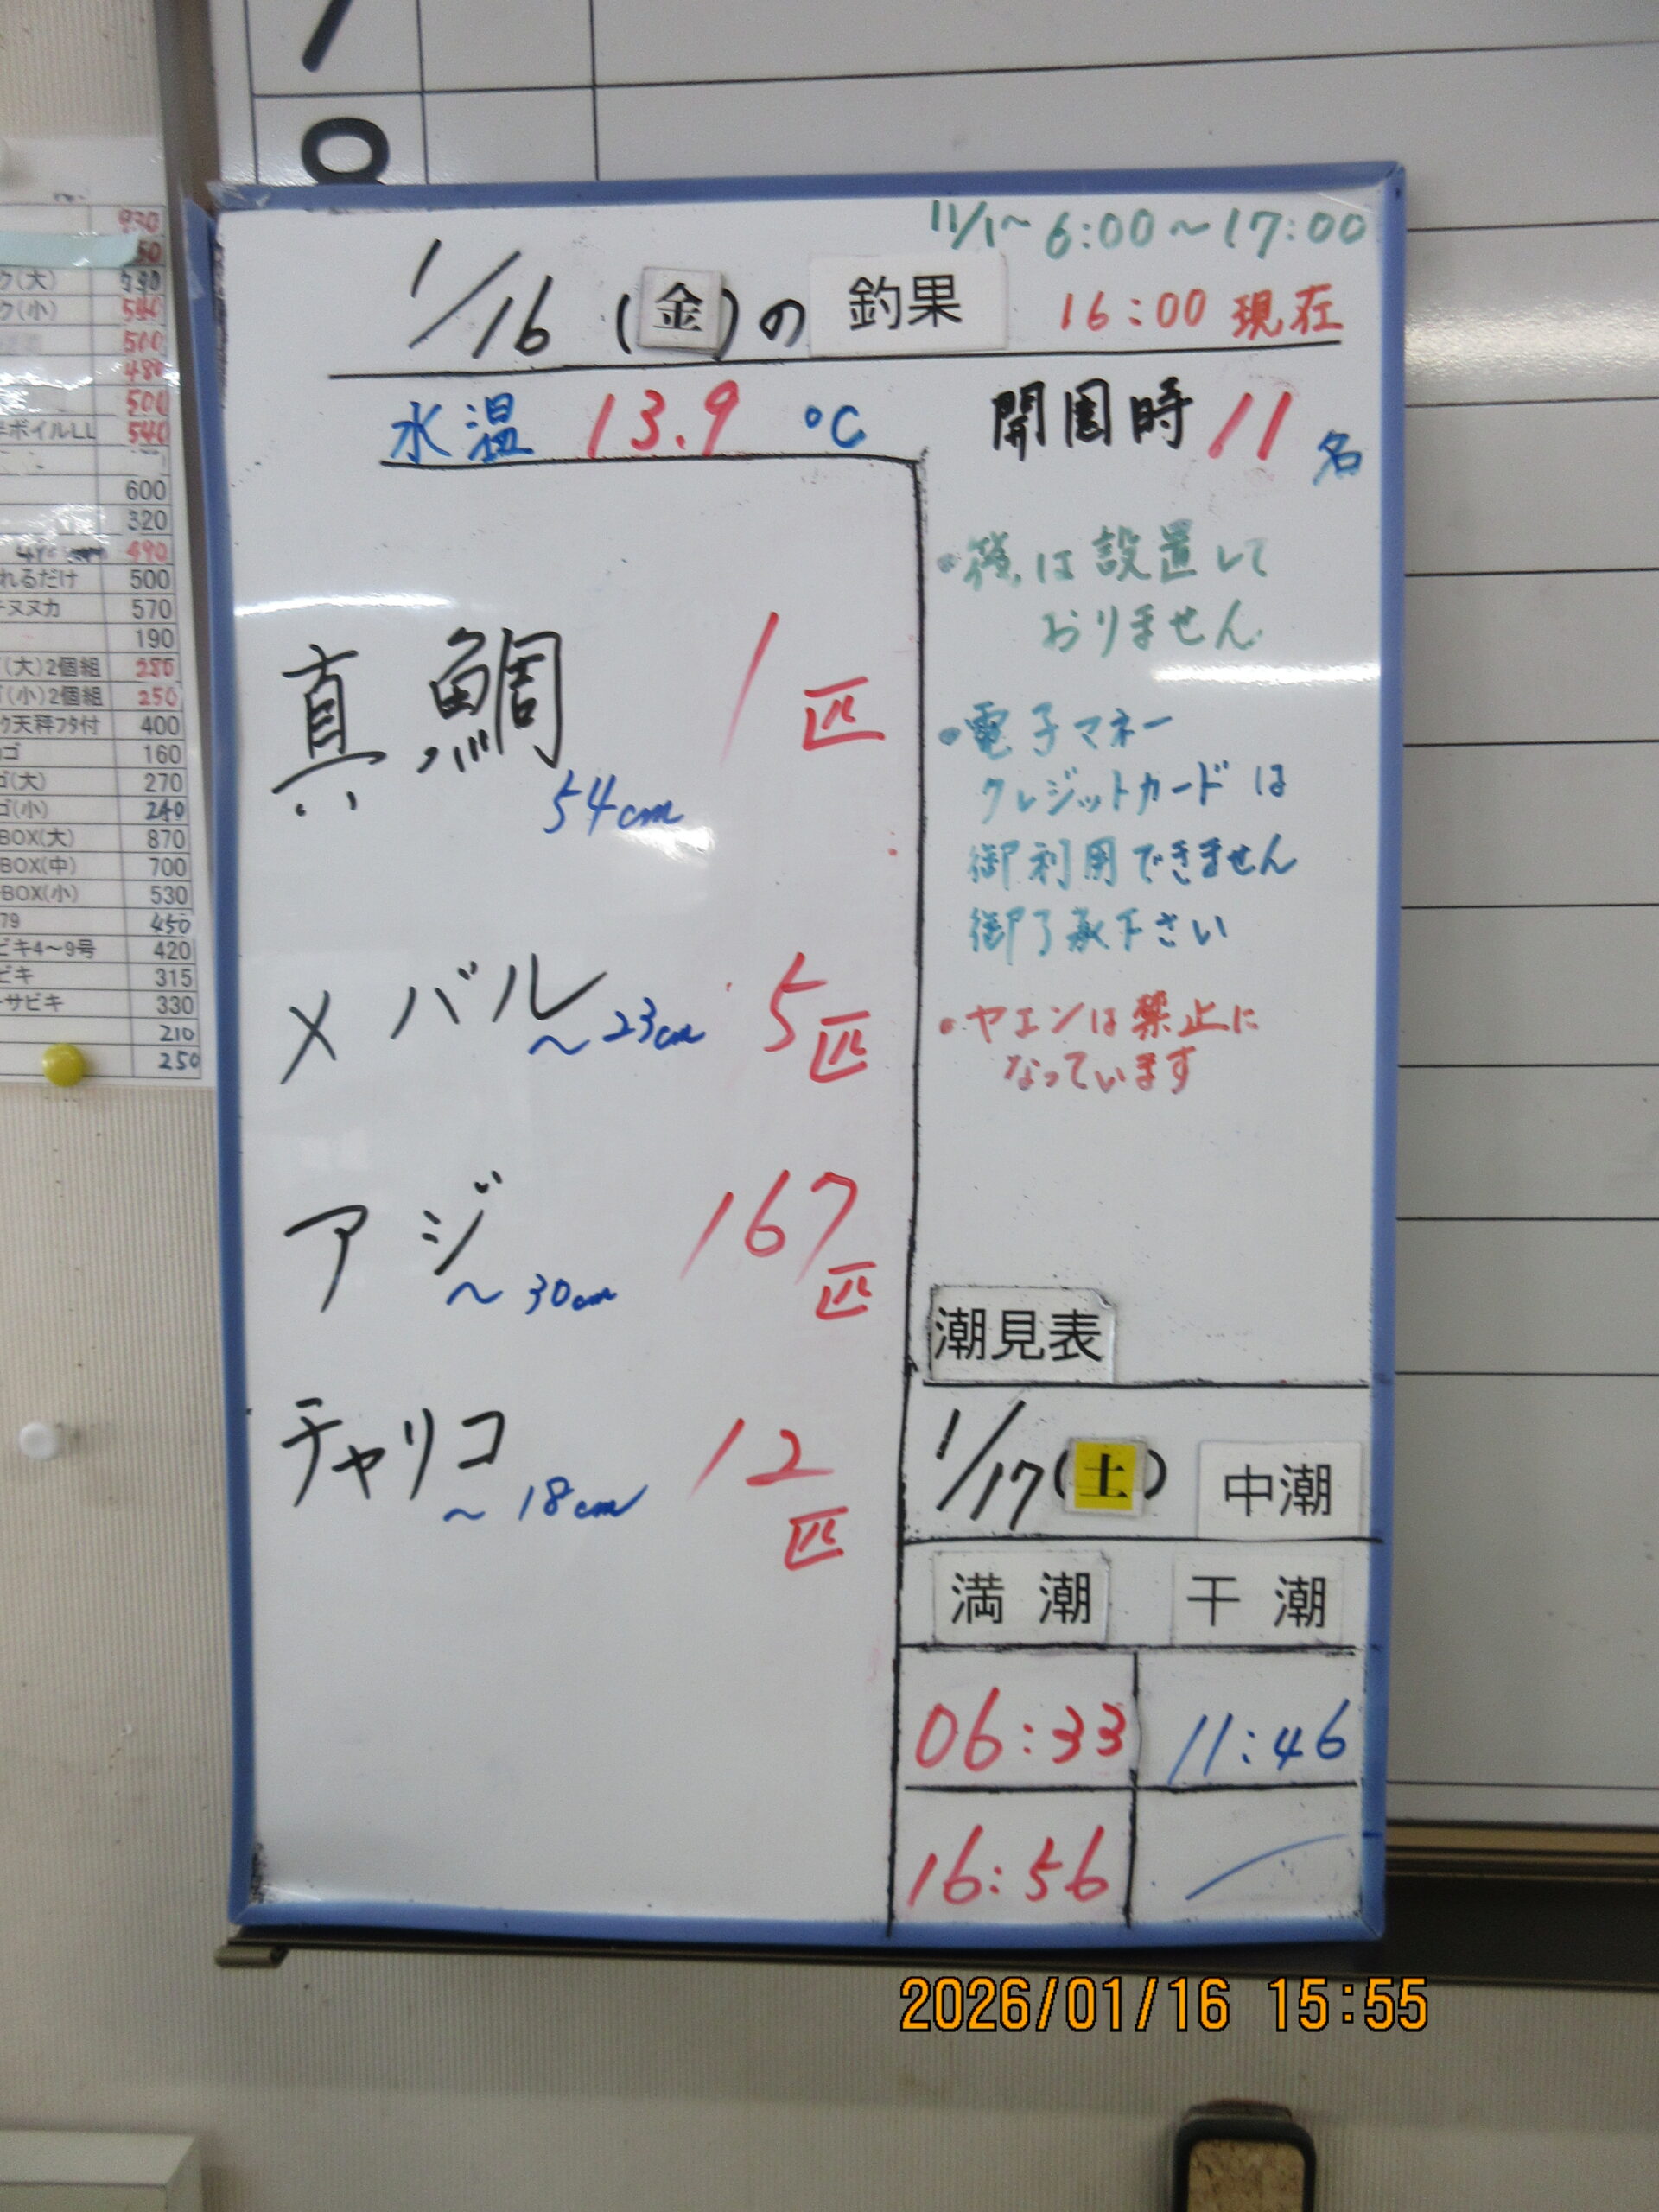 11/1~ 6:00~17:00
1/16 (金)の 釣果 16:00 現在
水温 13.9 ℃ 開園時 11名
真鯛 1匹
54cm
メバル ~23cm 5匹
アジ ~30cm 167匹
チャリコ ~18cm 12匹
は設置して
おりません
・電子マネー
クレジットカードは
御利用できません
御了承下さい
・ヤエンは禁止に
なっています
潮見表
1/17(土) 中潮
満潮 干潮
06:33 11:46
16:56
930
50
ク(大)
ク(小) 540
500
480
500
ボイルLL 540
600
320
490
れるだけ 500
ヌカ 570
190
(大)2個組 280
(小)2個組 250
ク天秤フタ付 400
ゴ 160
ゴ(大) 270
ゴ(小) 240
BOX(大) 870
BOX(中) 700
BOX(小) 530
79 450
ビキ4~9号 420
ビキ 315
サビキ 330
210
250
2026/01/16 15:55